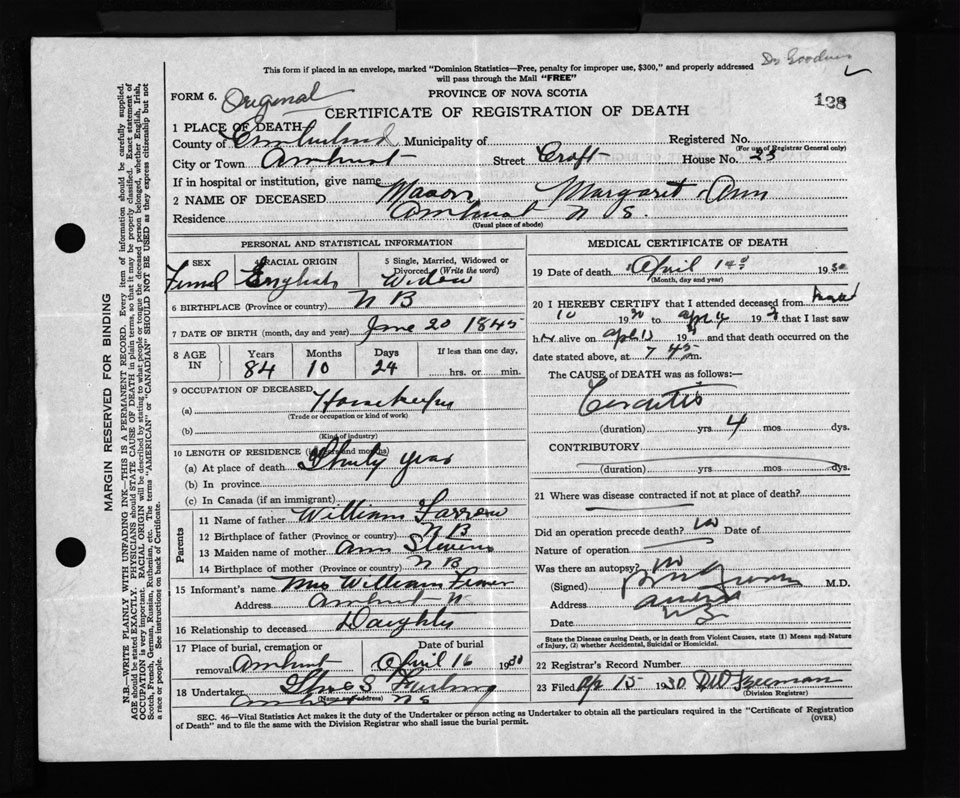 Dr Goodwin
This form if placed in an envelope, marked "Dominion Statistics—Free, penalty for improper use, $300," and properly addressed
will pass through the Mail "FREE"
FORM 6. Original
PROVINCE OF NOVA SCOTIA
128
CERTIFICATE OF REGISTRATION OF DEATH
1 PLACE OF DEATH
County of Cumberland Municipality of Registered No.
(For use of Registrar General only)
City or Town Amherst Street Croft House No. 23
If in hospital or institution, give name
2 NAME OF DECEASED Mason Margaret Ann
Residence Amherst N S.
(Usual place of abode)
PERSONAL AND STATISTICAL INFORMATION
3 SEX 4 RACIAL ORIGIN 5 Single, Married, Widowed or
Divorced (Write the word)
English Widow
6 BIRTHPLACE (Province or country) N B
7 DATE OF BIRTH (month, day and year) June 20 1845
8 AGE IN Years Months Days If less than one day,
84 10 24 hrs. or min.
9 OCCUPATION OF DECEASED
(a) Housekeeper
(Trade or occupation or kind of work)
(b)
(Kind of industry)
10 LENGTH OF RESIDENCE (in years and months)
(a) At place of death year
(b) In province
(c) In Canada (if an immigrant)
Parents
11 Name of father William
12 Birthplace of father (Province or country) N B
13 Maiden name of mother Ann Stevens
14 Birthplace of mother (Province or country) N B
15 Informant's name Mrs William
Address Amherst N
16 Relationship to deceased Daughter
17 Place of burial, cremation or Date of burial
removal Amherst April 16 1930
18 Undertaker
(Address) Amherst N S
MEDICAL CERTIFICATE OF DEATH
19 Date of death April 14 1930
(Month, day and year)
20 I HEREBY CERTIFY that I attended deceased from
10 1930 to Apr 14 193 that I last saw
her alive on Apl 13 and that death occurred on the
date stated above, at 7 45 m.
The CAUSE of DEATH was as follows:—
(duration) yrs 4 mos dys.
CONTRIBUTORY
(duration) yrs mos dys.
21 Where was disease contracted if not at place of death?
Did an operation precede death? no Date of
Nature of operation
Was there an autopsy? no
(Signed) M.D.
Address Amherst
Date N.S.
State the Disease causing Death, or in death from Violent Causes, state (1) Means and Nature
of Injury, (2) whether Accidental, Suicidal or Homicidal.
22 Registrar's Record Number
23 Filed Ap 15 1930 Freeman
(Division Registrar)
SEC. 46—Vital Statistics Act makes it the duty of the Undertaker or person acting as Undertaker to obtain all the particulars required in the "Certificate of Registration
of Death" and to file the same with the Division Registrar who shall issue the burial permit.
(OVER)
MARGIN RESERVED FOR BINDING
N.B.—WRITE PLAINLY WITH UNFADING INK—THIS IS A PERMANENT RECORD. Every item of information should be carefully supplied.
AGE should be stated EXACTLY. PHYSICIANS should STATE CAUSE OF DEATH in plain terms, so that it may be properly classified. Exact statement of
OCCUPATION is very important. RACIAL ORIGIN will be described by stating to what people or tongue the deceased person belonged, whether English, Irish,
Scotch, French, German, Russian, Ruthenian, etc. The terms "AMERICAN" or "CANADIAN" SHOULD NOT BE USED as they express citizenship but not
a race or people. See instructions on back of Certificate.